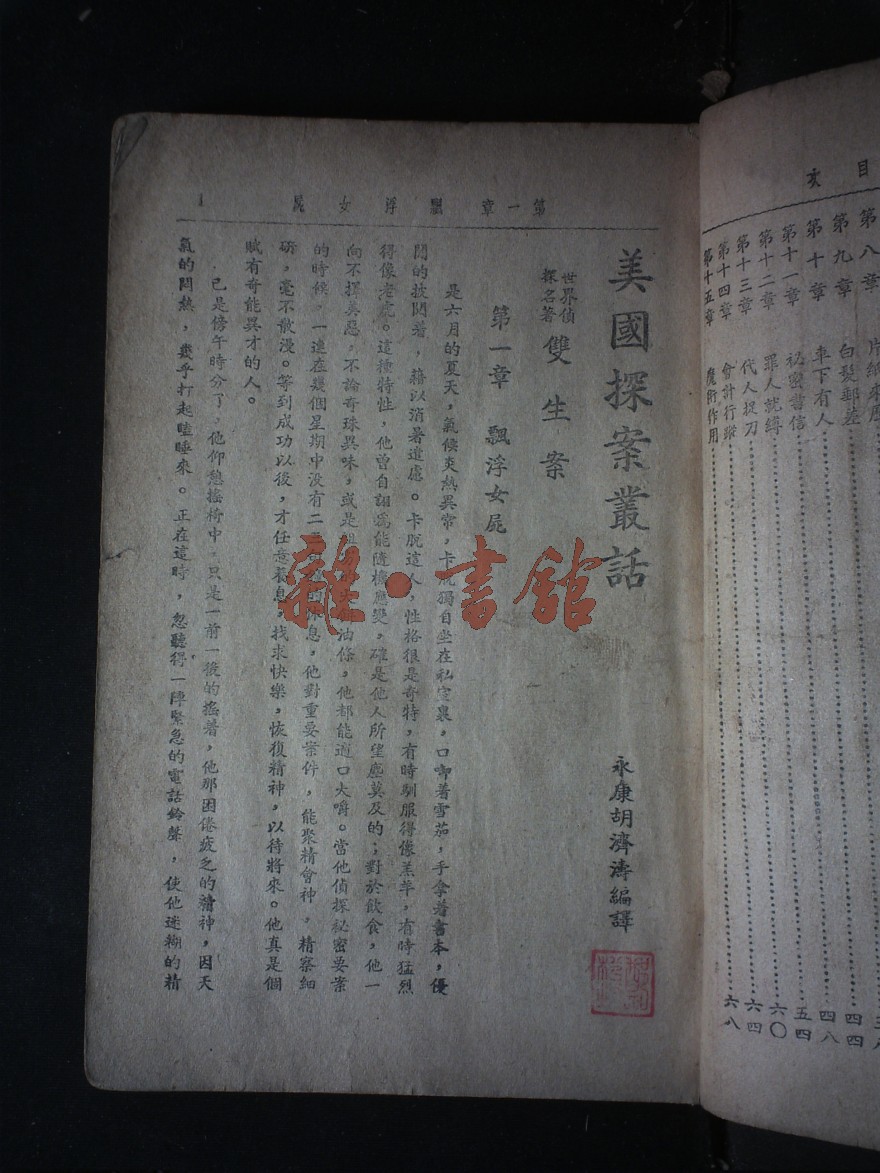 目次
第八章
第九章 白髮郵差 四四
第十章 車下有人 四八
第十一章 祕密書信 五四
第十二章 罪人就縛 六〇
第十三章 代人捉刀 六四
第十四章 會計行蹤 六八
第十五章 魔術作用
第一章 飄浮女屍 1
美國探案叢話
永康胡濟濤編譯
世界偵探名著 雙生案
第一章 飄浮女屍
是六月的夏天，氣候炎熱異常，卡脫獨自坐在私室裏，口啣着雪茄，手拿着書本，優
閒的披閱着，藉以消暑遣慮。卡脫這人，性格很是奇特，有時馴服得像羔羊，有時猛烈
得像老虎。這種特性，他曾自詡爲能隨機應變，確是他人所望塵莫及的；對於飲食，他一
向不擇美惡，不論奇珠異味，或是 油條，他都能適口大嚼。當他偵探秘密要案
的時候，一連在幾個星期中没有二 休息，他對重要案件，能聚精會神，精察細
研，毫不散漫。等到成功以後，才任意養息，找求快樂，恢復精神，以待將來。他真是個
賦有奇能異才的人。
已是傍午時分了，他仰憩搖椅中，只是一前一後的搖着，他那困倦疲乏的精神，因天
氣的悶熱，幾乎打起瞌睡來。正在這時，忽聽得一陣緊急的電話鈴聲，使他迷糊的精
雜·書館